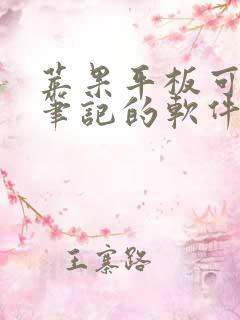 苹果平板可
筆記的軟件
王寨路